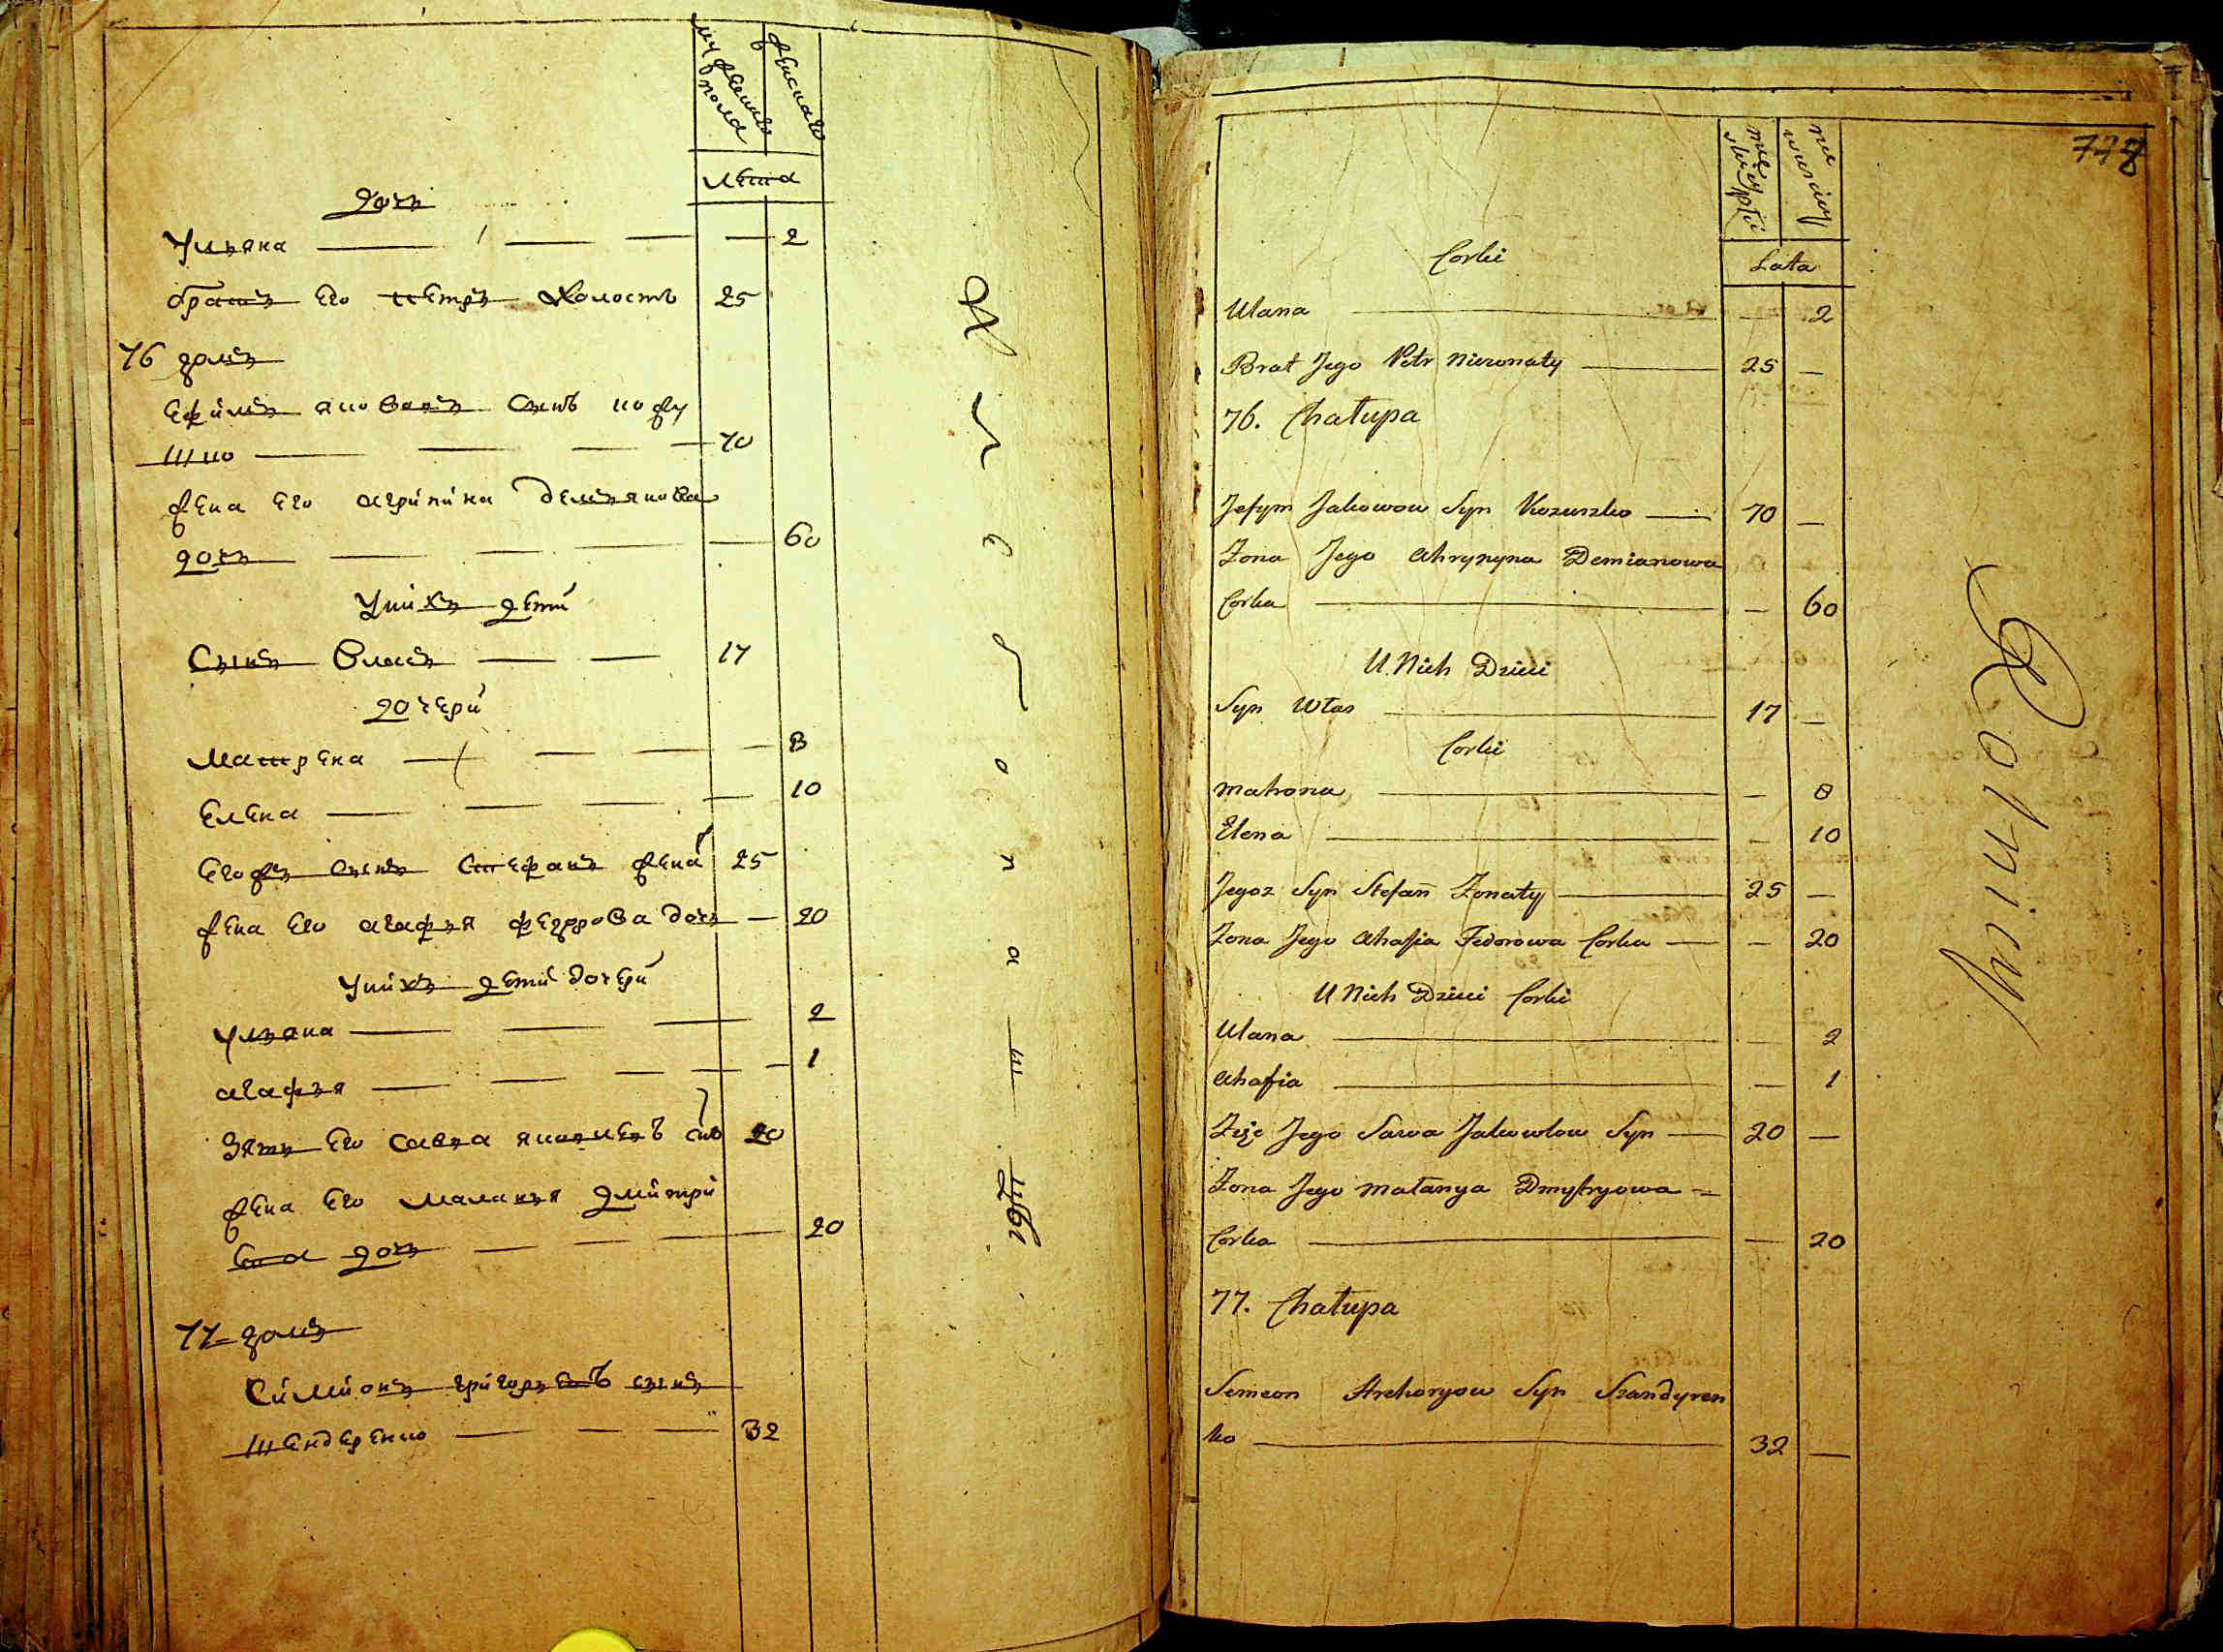 мужеска пола
женскаго
лета
дочь
Ульяна 2
братъ его петръ холостъ 25
76 домъ
Ефимъ яковлевъ сынъ кожу
шко 70
жена его агрипина демьянова
дочь 60
у нихъ дети
Сынъ Власъ 17
дочери
Матрена 8
Елена 10
Егожъ сынъ Стефанъ жена 25
жена его агафья федорова дочь 20
у нихъ дети дочери
Ульяна 2
агафья 1
Зять его савва яковлевъ снъ 20
жена его маланья дмитри
ева дочь 20
77 домъ
Симионъ григорьевъ сынъ
Шендеренко 32
хлебопашцы
778
męskiey płci
Lata
Corki
Ulana — 2
Brat Jego Petr Nieżonaty 25 —
76. Chałupa
Jefym Jakowow Syn Kożuszko 70 —
Żona Jego Ahrypyna Demianowa
Corka — 60
U Nich Dzieci
Syn Włas 17 —
Corki
Matrona — 8
Elena — 10
Jegoż Syn Stefan Żonaty 25 —
Żona Jego Ahafia Fedorowa Corka — 20
U Nich Dzieci Corki
Ulana — 2
Ahafia — 1
Zięć Jego Sawa Jakowlow Syn 20 —
Żona Jego Małanya Dmytryowa =
Corka — 20
77. Chałupa
Semeon Hrehoryow Syn Szandyren
ko 32 —
Rolnicy